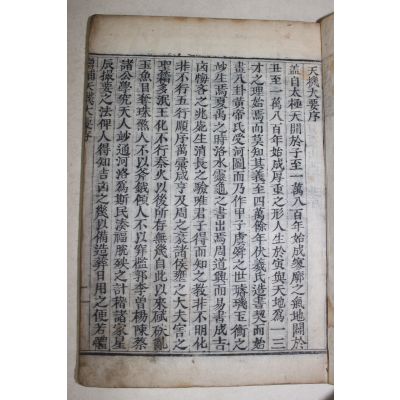 天機大要序
盖自太極天開於子至一萬八百年始成寥廓之氣地開於
丑至一萬八百年始成厚重之形人生於寅與天地爲一三
才之理始焉而莫知其義至四萬餘年伏羲氏造書契而始
畫八卦黃帝氏受河圖而乃作甲子虞舜之世璿璣玉衡之
妙生焉夏禹之時洛水靈龜之書出焉周道興而易書成吉
凶悔吝之兆生消長之驗唯君子得而知之教非不明化
非不行五行順序萬彙咸亨及周之衰諸侯雍之大夫官之
聖籍多泯王化不行秦火以後所存無幾自此以來亂
玉魚目奪珠黨人不以斧鉞傾人不以穽檻郭李曽楊陳蔡
諸公學究天人妙通河洛爲斯民湊福脫殃之計稽諸家星
辰撮要之法俾人得知吉凶之幾以備造葬日用之便若體
增補天機大要序